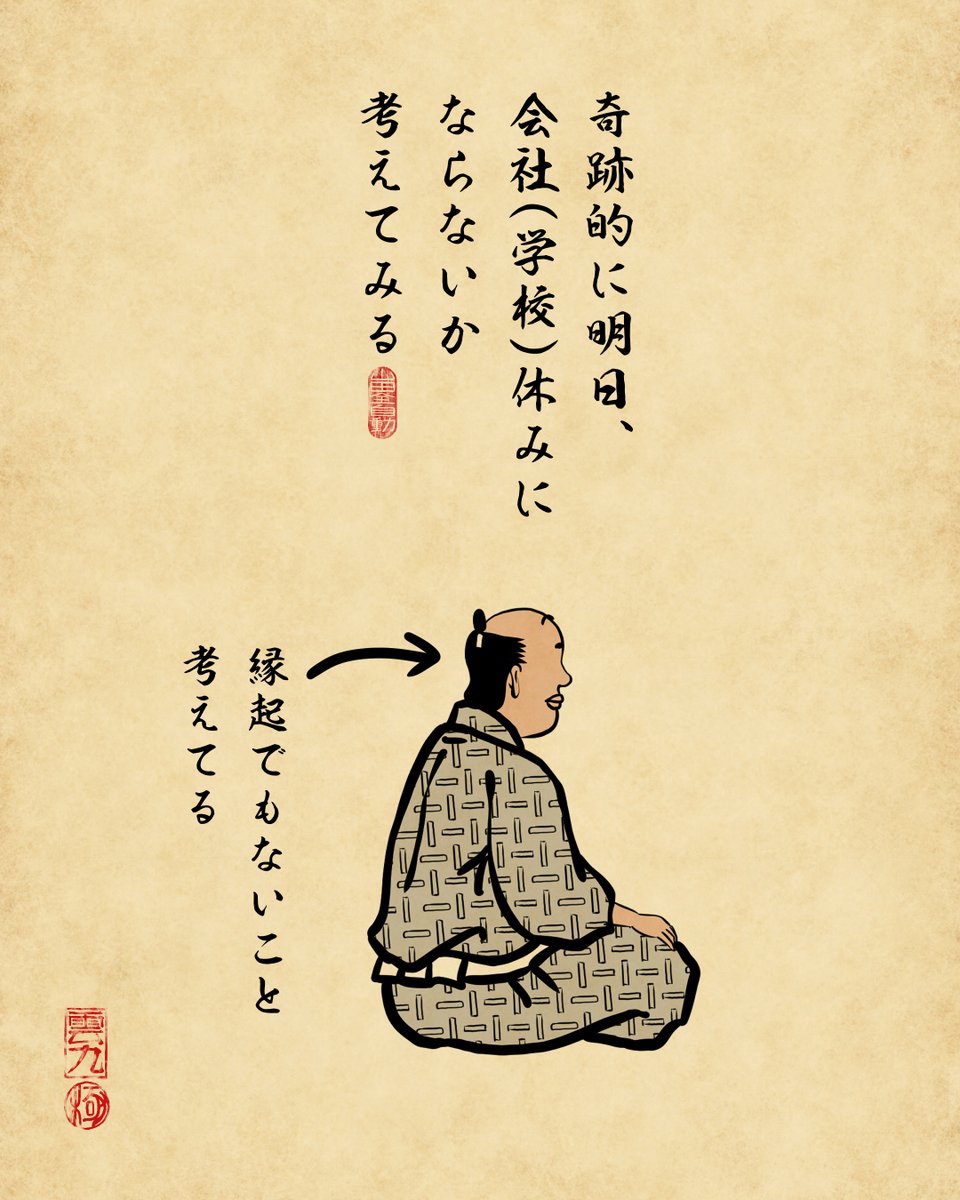 奇跡的に明日、
会社(学校)休みに
ならないか
考えてみる
縁起でもないこと
考えてる